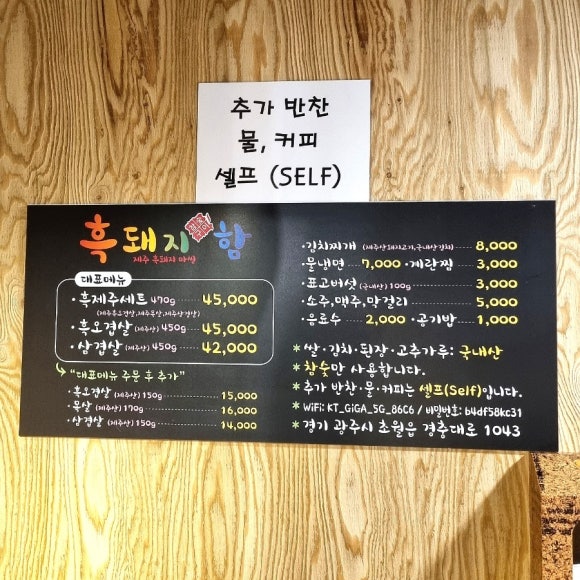 추가 반찬
물, 커피
셀프 (SELF)
흑돼지함
제주 흑돼지 마씸
대표메뉴
·흑제주세트 470g 45,000
(제주흑오겹살,제주목살,제주산 겹살)
·흑오겹살 (제주산) 450g 45,000
·삼겹살 (제주산) 450g 42,000
"대표메뉴 주문 후 추가"
·흑오겹살 (제주산) 150g 15,000
·목살 (제주산) 170g 16,000
·삼겹살 (제주산) 150g 14,000
·김치찌개 (제주산돼지고기,국내산김치) 8,000
·물냉면 7,000 ·계란찜 3,000
·표고버섯 (국내산) 100g 3,000
·소주,맥주,막걸리 5,000
·음료수 2,000 ·공기밥 1,000
*쌀·김치·된장·고추가루: 국내산
*참숯만 사용합니다.
*추가 반찬·물·커피는 셀프(Self)입니다.
*WiFi: KT_GiGA_5G_86C6 / 비밀번호: b4df58kc31
*경기 광주시 초월읍 경충대로 1043